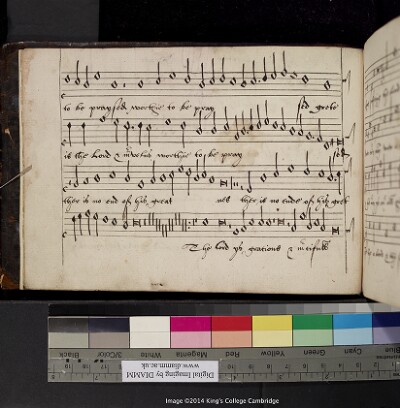 to be praysed worthie to be pray sed grete
is the Lord & worthie to be pray sed
ther is no end of his great nes ther is no ende of his gret
The lord ys gratious & mcifull
Black 3/Color White Magenta Red Yellow Green Cyan Blue
Digital Imaging by DIAMM
www.diamm.ac.uk
Image ©2014 King's College Cambridge